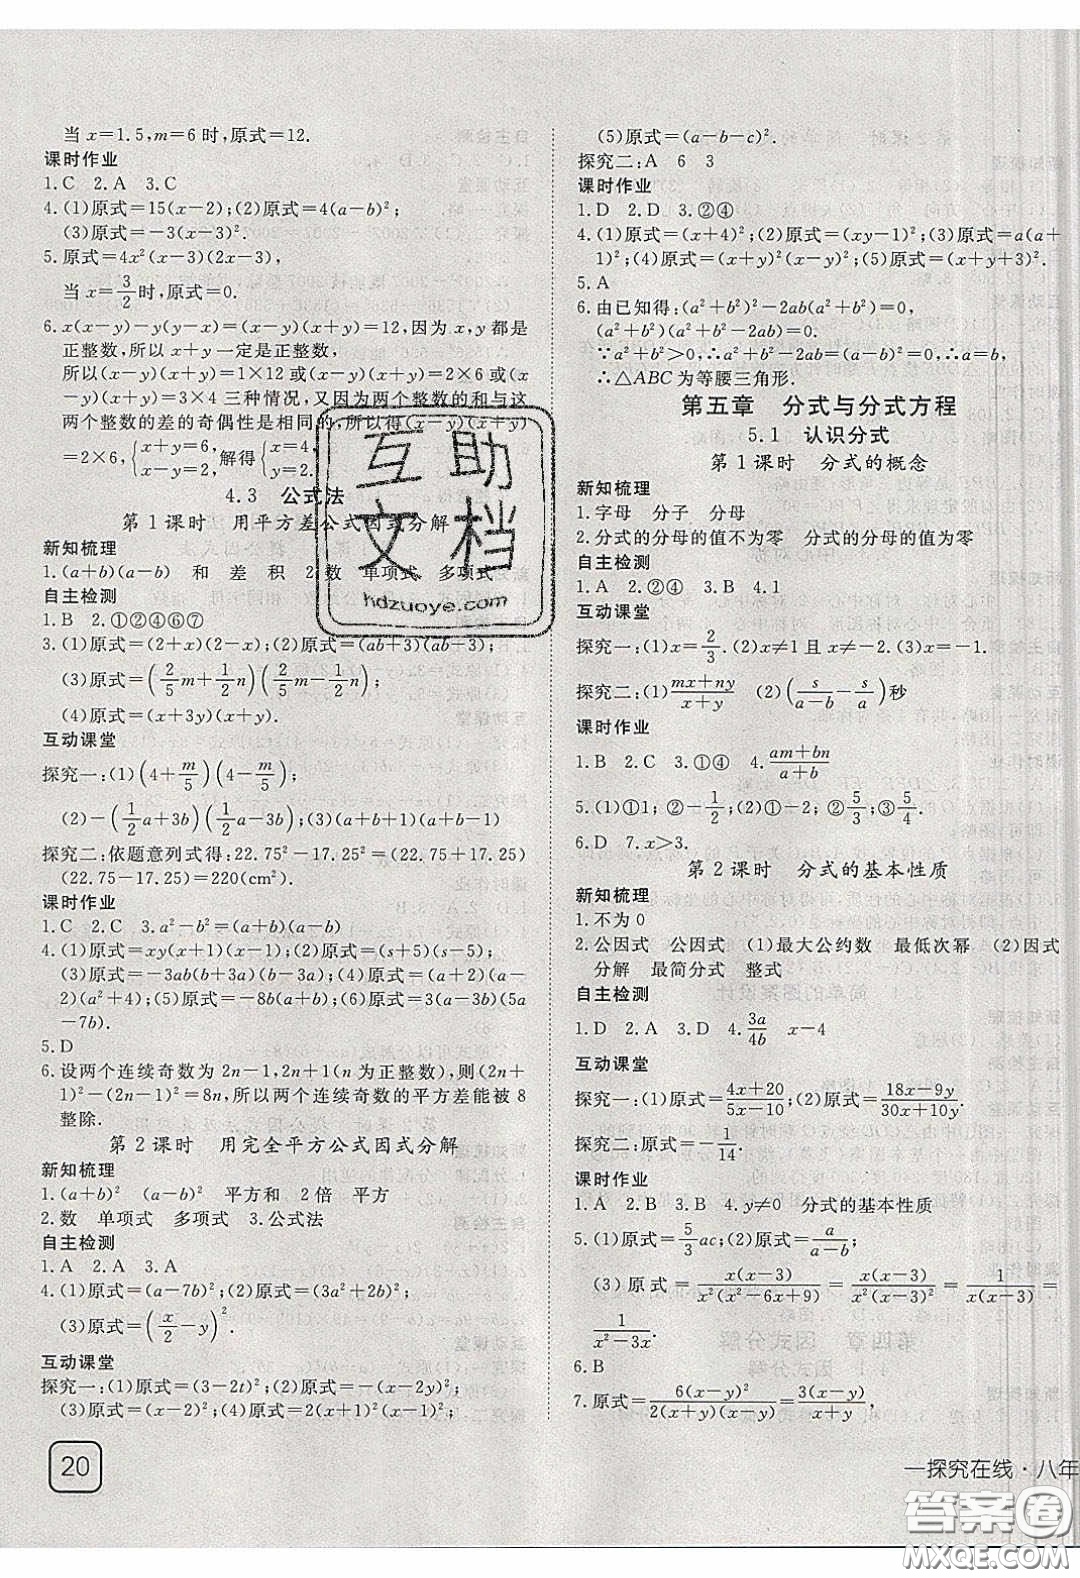 当 x=1.5,m=6 时,原式=12.
课时作业
1.C 2.A 3.C
4.(1)原式=15(x-2);(2)原式=4(a-b)²;
(3)原式=-3(x-3)².
5.原式=4x²(x-3)(2x-3),
当 x=3/2时,原式=0.
6.x(x-y)-y(y-x)=(x-y)(x+y)=12,因为 x,y 都是
正整数,所以 x+y 一定是正整数,
所以(x-y)(x+y)=1×12 或(x-y)(x+y)=2×6 或(x
-y)(x+y)=3×4 三种情况,又因为两个整数的和与这
两个整数的差的奇偶性是相同的,所以得(x-y)(x+y)
=2×6,{x+y=6,x-y=2,解得{x=4,y=2.
4.3 公式法
第 1 课时 用平方差公式因式分解
新知梳理
1.(a+b)(a-b) 和 差 积 2.数 单项式 多项式
自主检测
1.B 2.①②④⑥⑦
3.(1)原式=(2+x)(2-x);(2)原式=(ab+3)(ab-3);
(3)原式=(2/5m+1/2n)(2/5m-1/2n);
(4)原式=(x+3y)(x-y).
互动课堂
探究一:(1)(4+m/5)(4-m/5);
(2)-(1/2a+3b)(1/2a-3b);(3)(a+b+1)(a+b-1)
探究二:依题意列式得:22.75²-17.25²=(22.75+17.25)
(22.75-17.25)=220(cm²).
课时作业
1.C 2.C 3.a²-b²=(a+b)(a-b)
4.(1)原式=xy(x+1)(x-1);(2)原式=(s+5)(s-5);
(3)原式=-3ab(b+3a)(b-3a);(4)原式=(a+2)(a-
2)(a²+4);(5)原式=-8b(a+b);(6)原式=3(a+b)(5a
-7b).
5.D
6.设两个连续奇数为 2n-1,2n+1(n 为正整数),则(2n+
1)²-(2n-1)²=8n,所以两个连续奇数的平方差能被 8
整除.
第 2 课时 用完全平方公式因式分解
新知梳理
1.(a+b)² (a-b)² 平方和 2 倍 平方
2.数 单项式 多项式 3.公式法
自主检测
1.A 2.A 3.A
4.(1)原式=(a-7b)²;(2)原式=(3a²+2b)²
(3)原式=(x/2-y)².
互动课堂
探究一:(1)原式=(3-2t)²;(2)原式=(x-y-1)²;
(3)原式=(x-y)²;(4)原式=2(x+1)²(x-1)²;
20
(5)原式=(a-b-c)².
探究二:A 6 3
课时作业
1.D 2.D 3.②④
4.(1)原式=(x+4)²;(2)原式=(xy-1)²;(3)原式=a(a+
1)²;(4)原式=(x+y)²(x-y)²;(5)原式=(x+y+3)².
5.A
6.由已知得:(a²+b²)²-2ab(a²+b²)=0,
(a²+b²)(a²+b²-2ab)=0.
∵a²+b²>0,∴a²+b²-2ab=(a-b)²=0,∴a=b,
∴△ABC 为等腰三角形.
第五章 分式与分式方程
5.1 认识分式
第 1 课时 分式的概念
新知梳理
1.字母 分子 分母
2.分式的分母的值不为零 分式的分母的值为零
自主检测
1.A 2.②④ 3.B 4.1
互动课堂
探究一:(1)x=2/3.(2)x≠1 且 x≠-2.(3)x=-1.
探究二:(1)(mx+ny)/(x+y) (2)(s/(a-b)-s/a)秒
课时作业
1.B 2.C 3.①④ 4.(am+bn)/(a+b)
5.(1)①1;②-1/2;(2)①-2;②5/3;③5/4.
6.D 7.x>3.
第 2 课时 分式的基本性质
新知梳理
1.不为 0
2.公因式 公因式 (1)最大公约数 最低次幂 (2)因式
分解 最简分式 整式
自主检测
1.D 2.A 3.D 4.3a/4b x-4
互动课堂
探究一:(1)原式=(4x+20)/(5x-10);(2)原式=(18x-9y)/(30x+10y).
探究二:原式=-1/14.
课时作业
1.A 2.B 3.B 4.y≠0 分式的基本性质
5.(1)原式=5/3ac;(2)原式=a/(a-b);
(3)原式=x(x-3)/x²(x²-6x+9)=x(x-3)/x²(x-3)²=1/x(x-3)=
1/(x²-3x).
6.B
7.原式=6(x-y)²/2(x+y)(x-y)=3(x-y)/(x+y),
一探究在线·八年
互助
文档
hdzuoye.com
答案圈
MXQE.COM